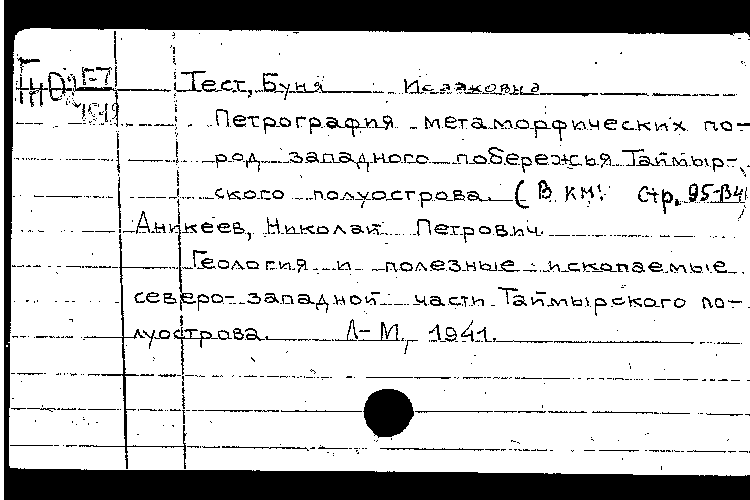 Тест, Буня Исааковна
Петрография метаморфических по-
род западного побережья Таймыр-
ского полуострова. (В кн: стр. 95-134
Аникеев, Николай Петрович
Геология и полезные ископаемые
северо-западной части Таймырского по-
луострова. Л-М, 1941.